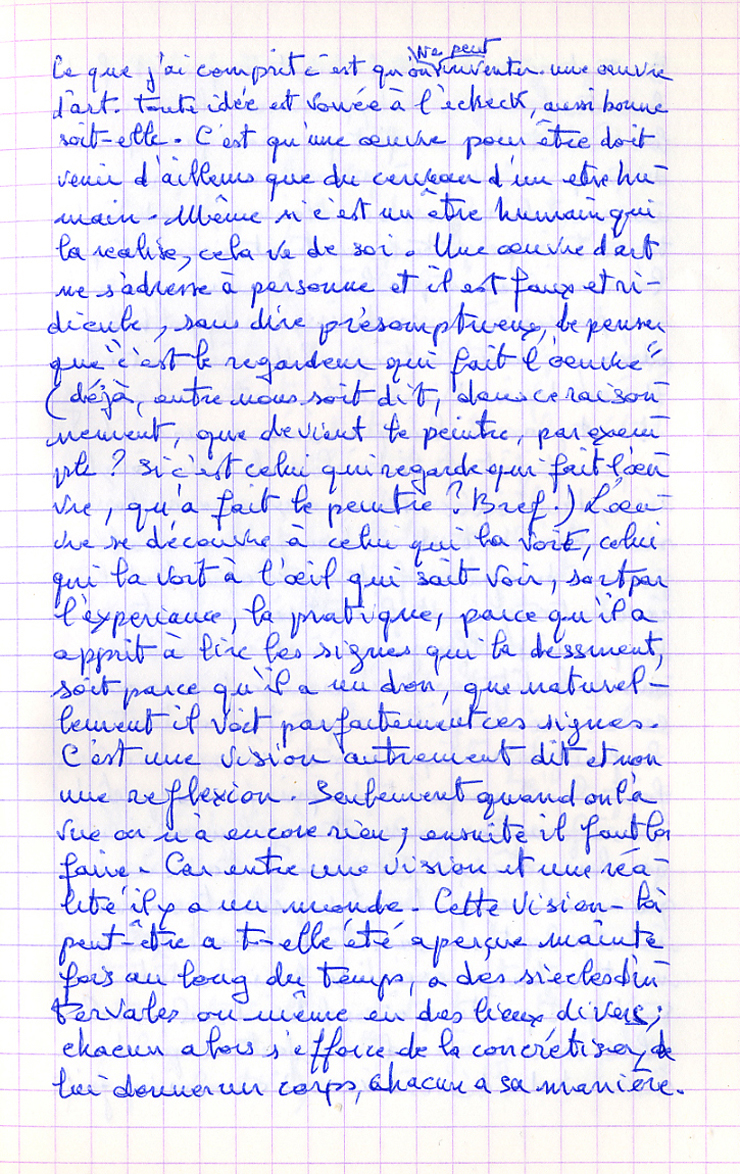 Ce que j'ai comprit c'est qu'on ne peut inventer une œuvre
d'art. Toute idée est vouée à l'écheck, aussi bonne
soit-elle. C'est qu'une œuvre pour être doit
venir d'ailleurs que du cerveau d'un etre hu-
main. Même si c'est un être humain qui
la realise, cela va de soi. Une œuvre d'art
ne s'adresse à personne et il est faux et ri-
dicule, sans dire présomptueux, de penser
que "c'est le regardeur qui fait l'œuvre"
(déjà, entre nous soit dit, dans ce raison-
nement, que devient le peintre, par exem-
ple ? si c'est celui qui regarde qui fait l'œu-
vre, qu'a fait le peintre ? Bref.) L'œu-
vre se découvre à celui qui la voit, celui
qui la voit à l'œil qui sait voir, soit par
l'experiance, la pratique, parce qu'il a
apprit à lire les signes qui la dessinent,
soit parce qu'il a un don, que naturel-
lement il voit parfaitement ces signes.
C'est une vision autrement dit et non
une reflexion. Seulement quand on l'a
vue on n'a encore rien ; ensuite il faut la
faire. Car entre une vision et une réa-
lité il y a un monde. Cette vision-là
peut-être a t-elle été aperçue mainte
fois au long du temps, a des siecles d'in
tervales ou même en des lieux divers ;
chacun alors s'efforce de la concrétiser, de
lui donner un corps, chacun a sa manière.